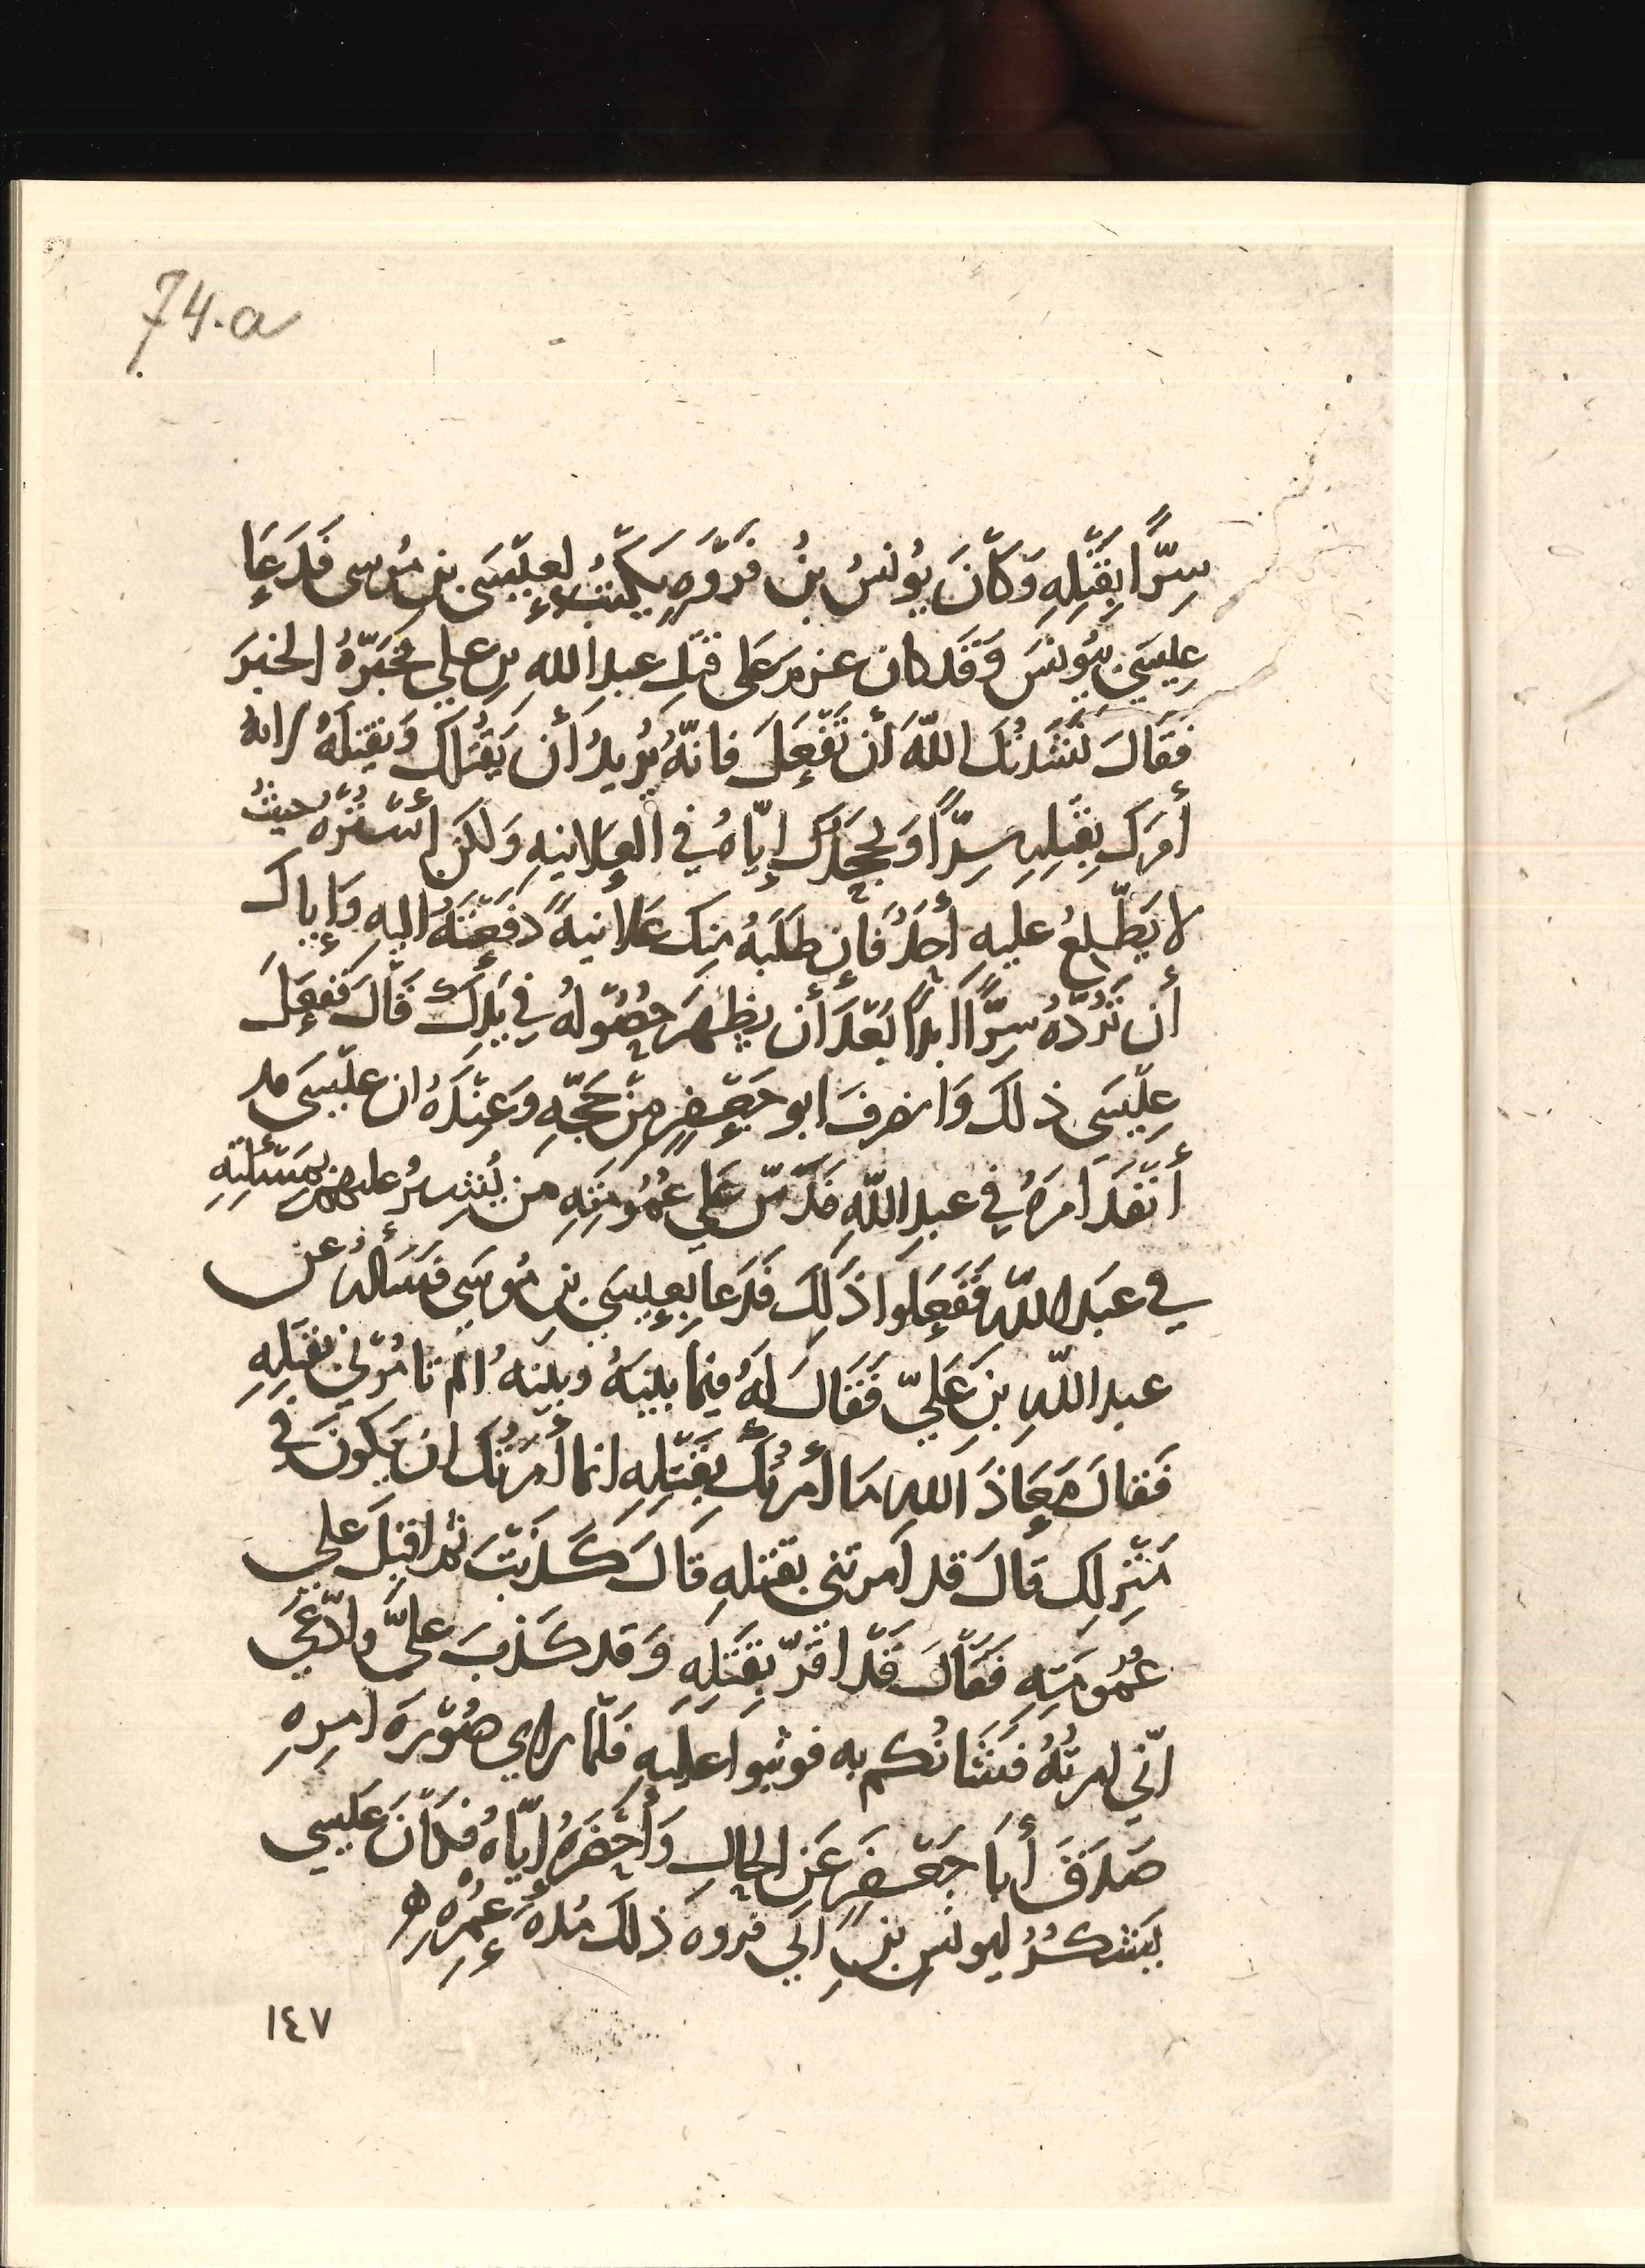 74.a
سِرًّا بِقَتْلِهِ وَكَانَ يُونسُ بنُ فَرْوَةٍ يَكْتُبُ لِعِيْسَى بنِ مُوسى فَدَعَا
عِيسَى بيُونسَ وَقَدكان عزم عَلى قتلِ عبدِ اللهِ بنِ علي فخبَرّهُ الخبَرَ
فقَالَ نَشَدْتُكَ اللّهَ أن تَفْعَلَ فانّهُ يُرِيدُ أن يَقْتُلكَ وَيقتلَهُ لانهُ
أمَرَكَ بِقتْلِهِ سِرًّا وَيَجحَدُكَ إيّاهُ في العَلانيةِ وَلكن أسْتُرْهُ حيثُ
لا يَطّلِعُ عليهِ أحَدٌ فَإن طَلَبَهُ منكَ عَلانيةً دَفَعْتَهُ اليهِ وَإياكَ
أن تَرُدّهُ سِرًّا ابدًا بَعْدَ أن يظهَرَ حُصُولُهُ في يَدِكَ فَقَالَ فَفَعَلَ
عِيْسَى ذلكَ وَانصرفَ ابو جَعْفرٍ من حَجّهِ وَعِنْدَهُ ان عِيْسَى قد
أنْفَذَ أمرَهُ في عبدِ اللّهِ فَدَسّ عَلى عُمُومَتِهِ من يُشِيرُ عليهم بمَسْألَتِهِ
في عبدِ اللّهِ فَفَعَلوا ذَلِكَ فَدَعا بعِيسَى بنِ مُوسَى فسَألهُ عن
عبدِ اللّهِ بنِ عَليّ فَقَالَ لَهُ فيمَا بينَهُ وبينَهُ الم تامُرْني بقَتلِهِ
فَقالَ مَعَاذَ اللهِ مَا أمرتُكَ بقَتْلِهِ انما أمَرْتُكَ ان يَكونَ في
مَنْزِلِكَ قَالَ قد امَرتني بقتلهِ قالَ كَذَبْتَ ثم اقبلَ على
عُمُومَتِهِ فَقَالَ قَدْ اقَرّ بقَتلِهِ وَقد كَذبَ عليَّ وَادّعَى
انّي امرتُهُ فشَانُكم به فوثبوا عليهِ فَلمّا راي صُوْرَةَ امرِهِ
صَدَقَ أبَا جَعْفرٍ عَنِ الحالِ وَأحْضَرَهُ ايّاهُ فكَانَ عيسي
يَشكُرُ ليونسَ بنِ ابي فروه ذلكَ مُدةَ عُمْرِهِ ه
١٤٧